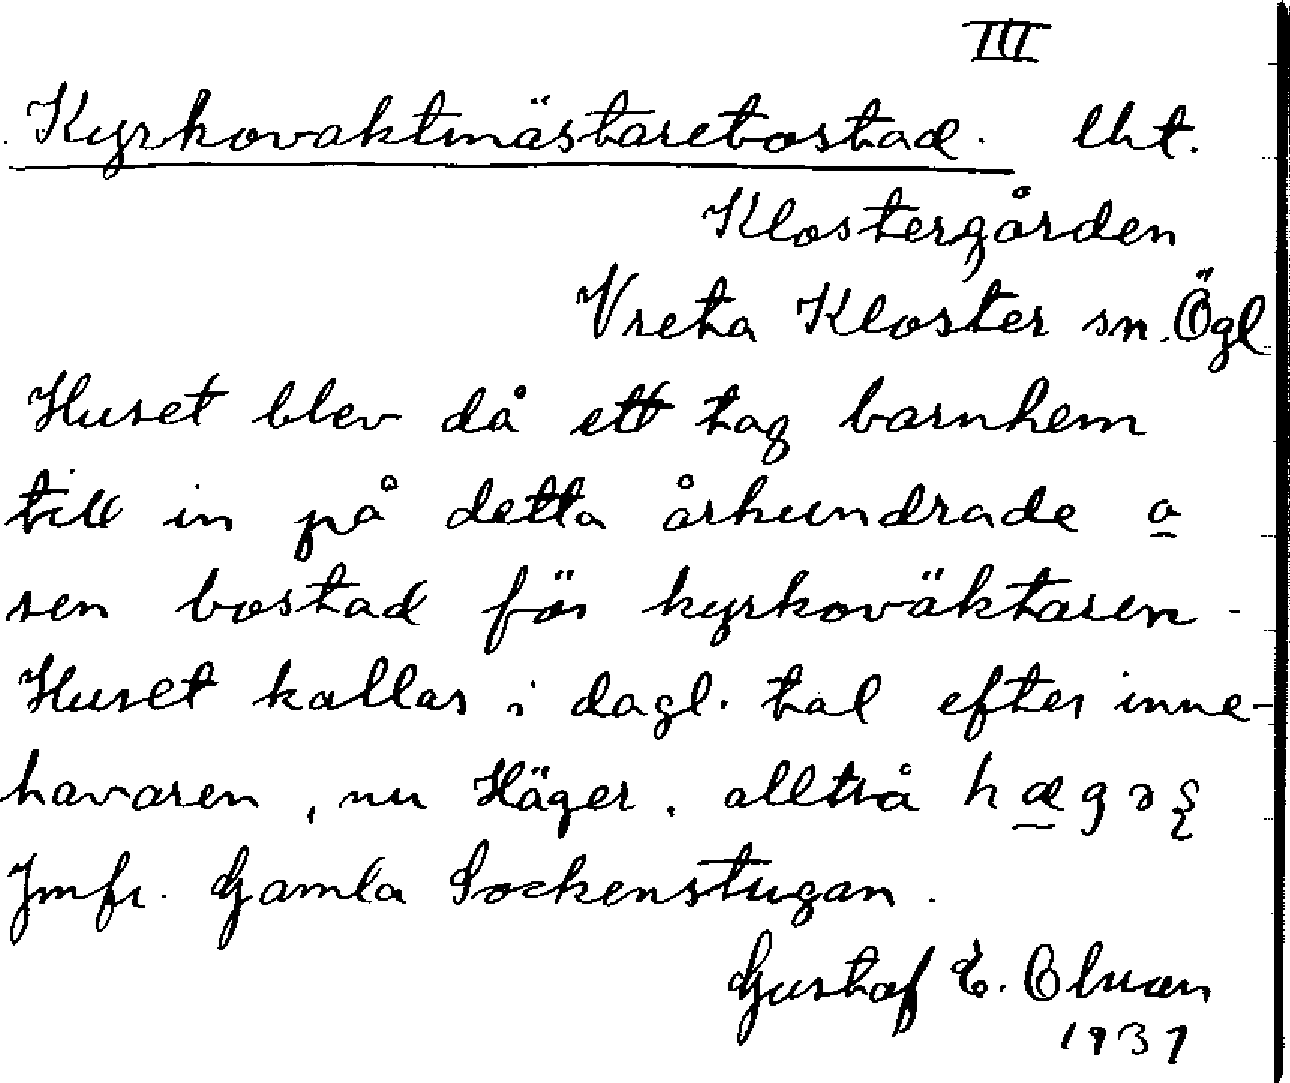 III
Kyrkovaktmästarebostad. lht.
Klostergården
Vreta Kloster sn. Ögl
Huset blev då ett tag barnhem
till in på detta århundrade o
sen bostad för kyrkoväktaren -
Huset kallas i dagl. tal efter inne-
havaren, nu Häger. alltså
Jmfr. Gamla Sockenstugan.
Gustaf E.
1937